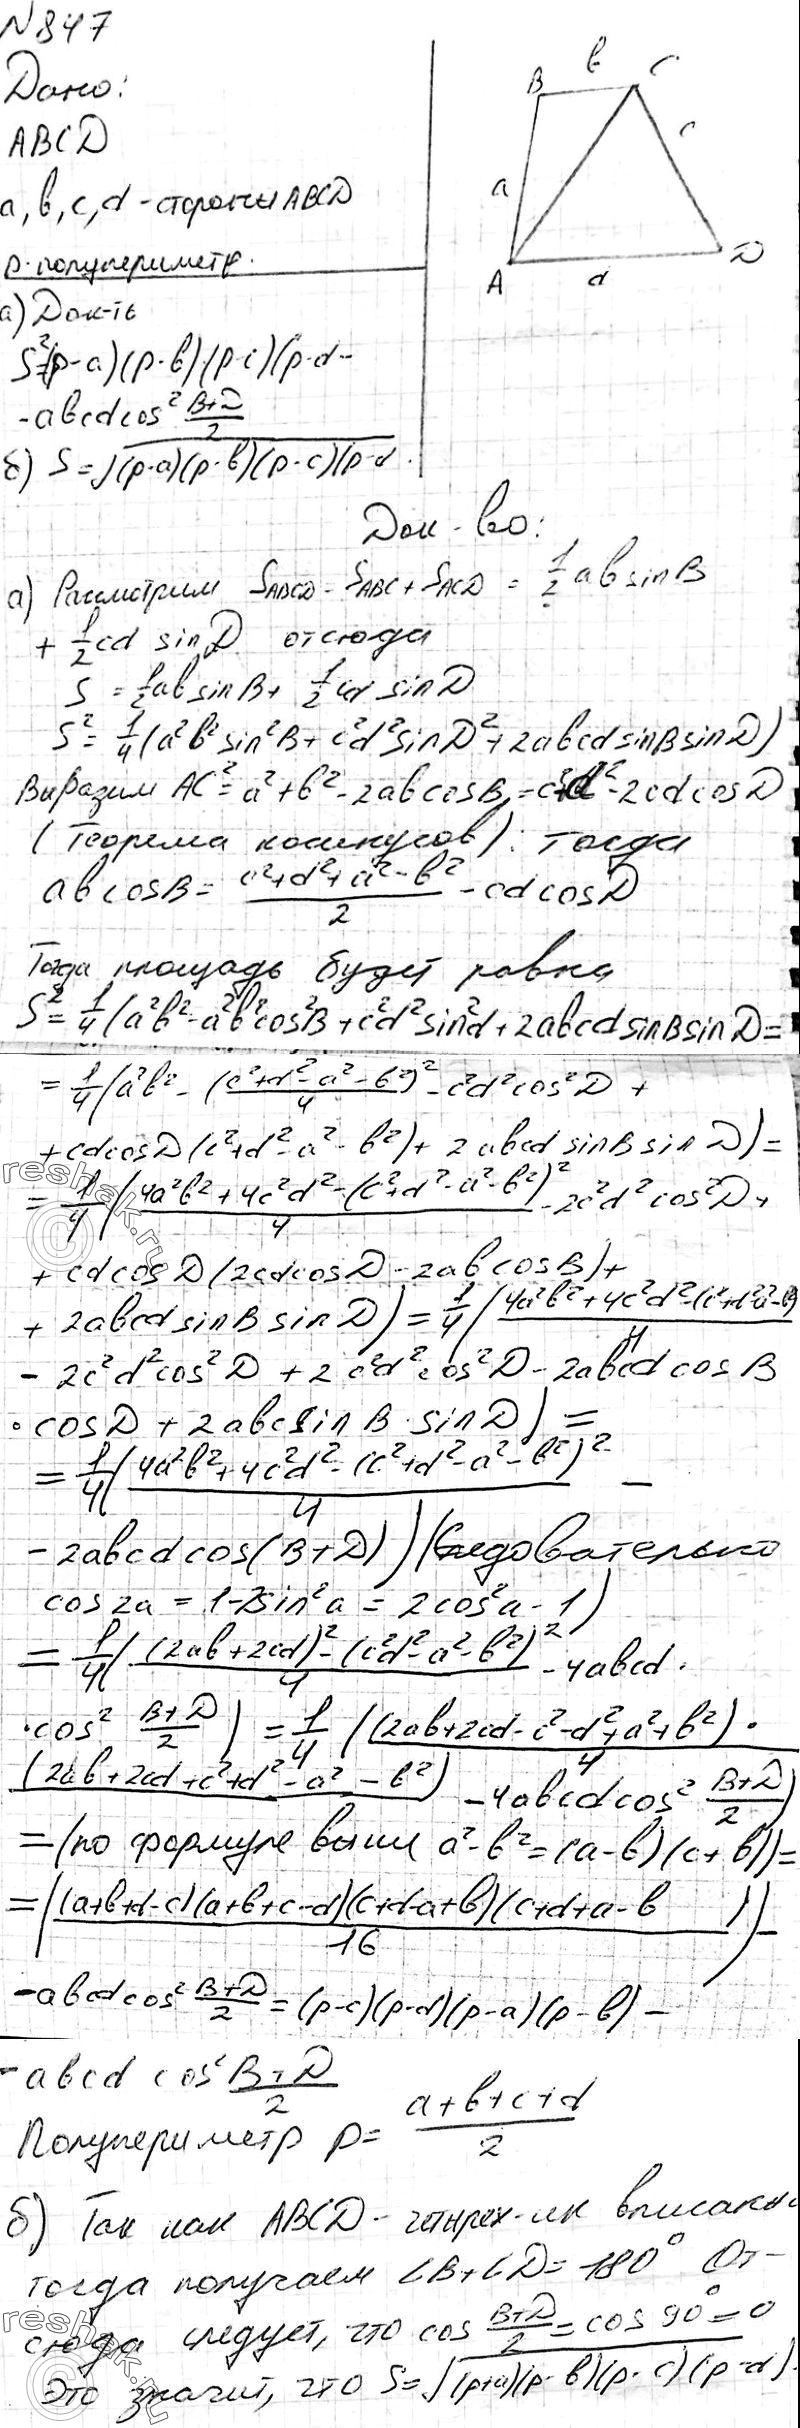 №847
Дано:
ABCD
a, b, c, d - стороны ABCD
p - полупериметр.
B b C
a c
A d D
а) Док-ть
S²=(p-a)(p-b)(p-c)(p-d-
-abcd cos² (B+D)/2
б) S = √(p-a)(p-b)(p-c)(p-d.
Док-во:
а) Рассмотрим S_ABCD = S_ABC + S_ACD = 1/2 ab sin B
+ 1/2 cd sin D отсюда
S = 1/2 ab sin B + 1/2 cd sin D
S² = 1/4 (a²b² sin² B + c²d² sin D² + 2abcd sin B sin D)
Выразим AC² = a² + b² - 2ab cos B = c²+d² - 2cd cos D
(Теорема косинусов). Тогда
ab cos B = (c²+d²+a²-b²)/2 - cd cos D
Тогда площадь будет равна
S² = 1/4 (a²b² - a²b² cos² B + c²d² sin² d + 2abcd sin B sin D =
= 1/4 (a²b² - (c²+d²-a²-b²)²/4 - c²d² cos² D +
+ cd cos D (c²+d²-a²-b²) + 2abcd sin B sin D) =
= 1/4 ((4a²b²+4c²d²-(c²+d²-a²-b²)²)/4 - 2c²d² cos² D +
+ cd cos D (2cd cos D - 2ab cos B) +
+ 2abcd sin B sin D) = 1/4 ((4a²b²+4c²d²-(c²+d²-a²-b²)/4
- 2c²d² cos² D + 2c²d² cos² D - 2abcd cos B
· cos D + 2abc sin B · sin D) =
= 1/4 ((4a²b²+4c²d²-(c²+d²-a²-b²)²)/4 -
- 2abcd cos(B+D)) (Следовательно
cos 2a = 1-2sin² a = 2cos² a - 1)
= 1/4 (((2ab+2cd)²-(c²d²-a²-b²)²)/4 - 4abcd ·
· cos² (B+D)/2) = 1/4 ((2ab+2cd-c²-d²+a²+b²) ·
(2ab+2cd+c²+d²-a²-b²)/4 - 4abcd cos² (B+D)/2)
= (по формуле выше a²-b² = (a-b)(c+b)) =
= ((a+b+d-c)(a+b+c-d)(c+d-a+b)(c+d+a-b)/16) -
- abcd cos² (B+D)/2 = (p-c)(p-d)(p-a)(p-b) -
- abcd cos² (B+D)/2
Полупериметр p = (a+b+c+d)/2
б) Так как ABCD - четырех-ик вписанны
тогда получаем ∠B+∠D = 180° От-
сюда следует, что cos (B+D)/2 = cos 90° = 0
Это значит, что S = √(p+a)(p-b)(p-c)(p-d).
reshak.ru
reshak.ru